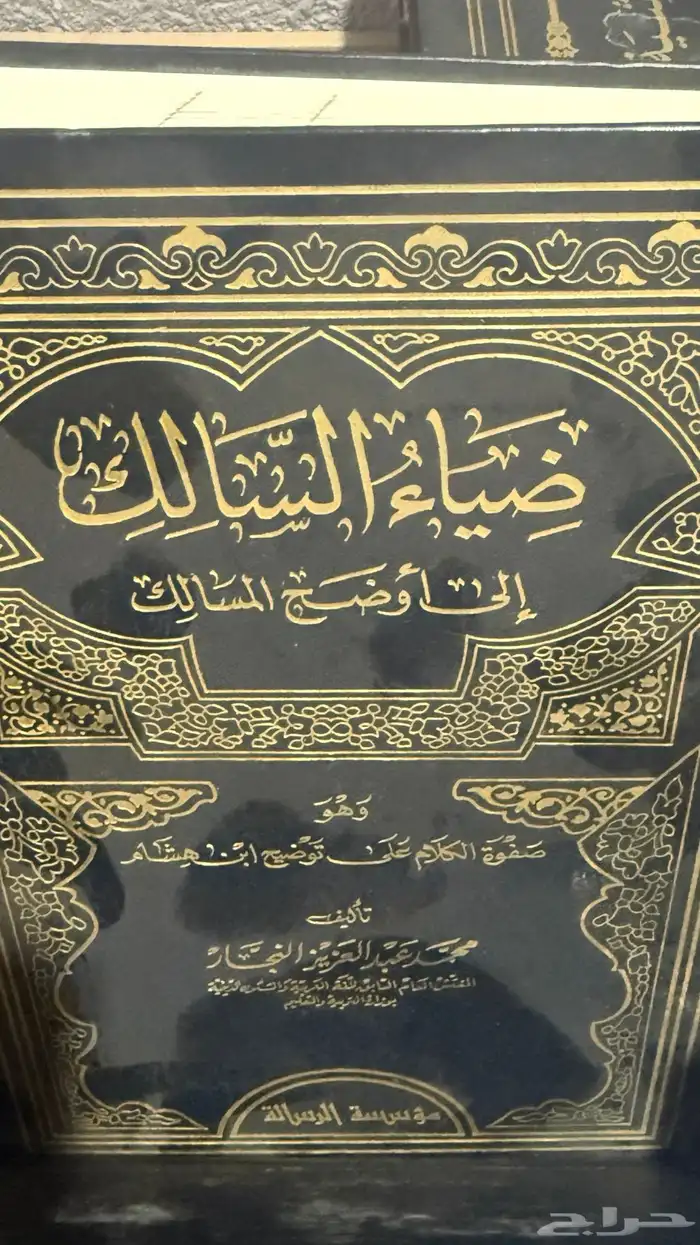 ضِيَاءُ السَّالِكِ
إلى أوضَح المسَالِك
وَهْوَ
صَفْوَة الكلام عَلى تَوْضيح ابن هِشَام
تأليف
محمد عَبد العَزيز النجَّار
المفتش العام السابق للغة العربية والشئون الدينية
بوزارة التربية والتعليم
مؤسسة الرسالة
حراج